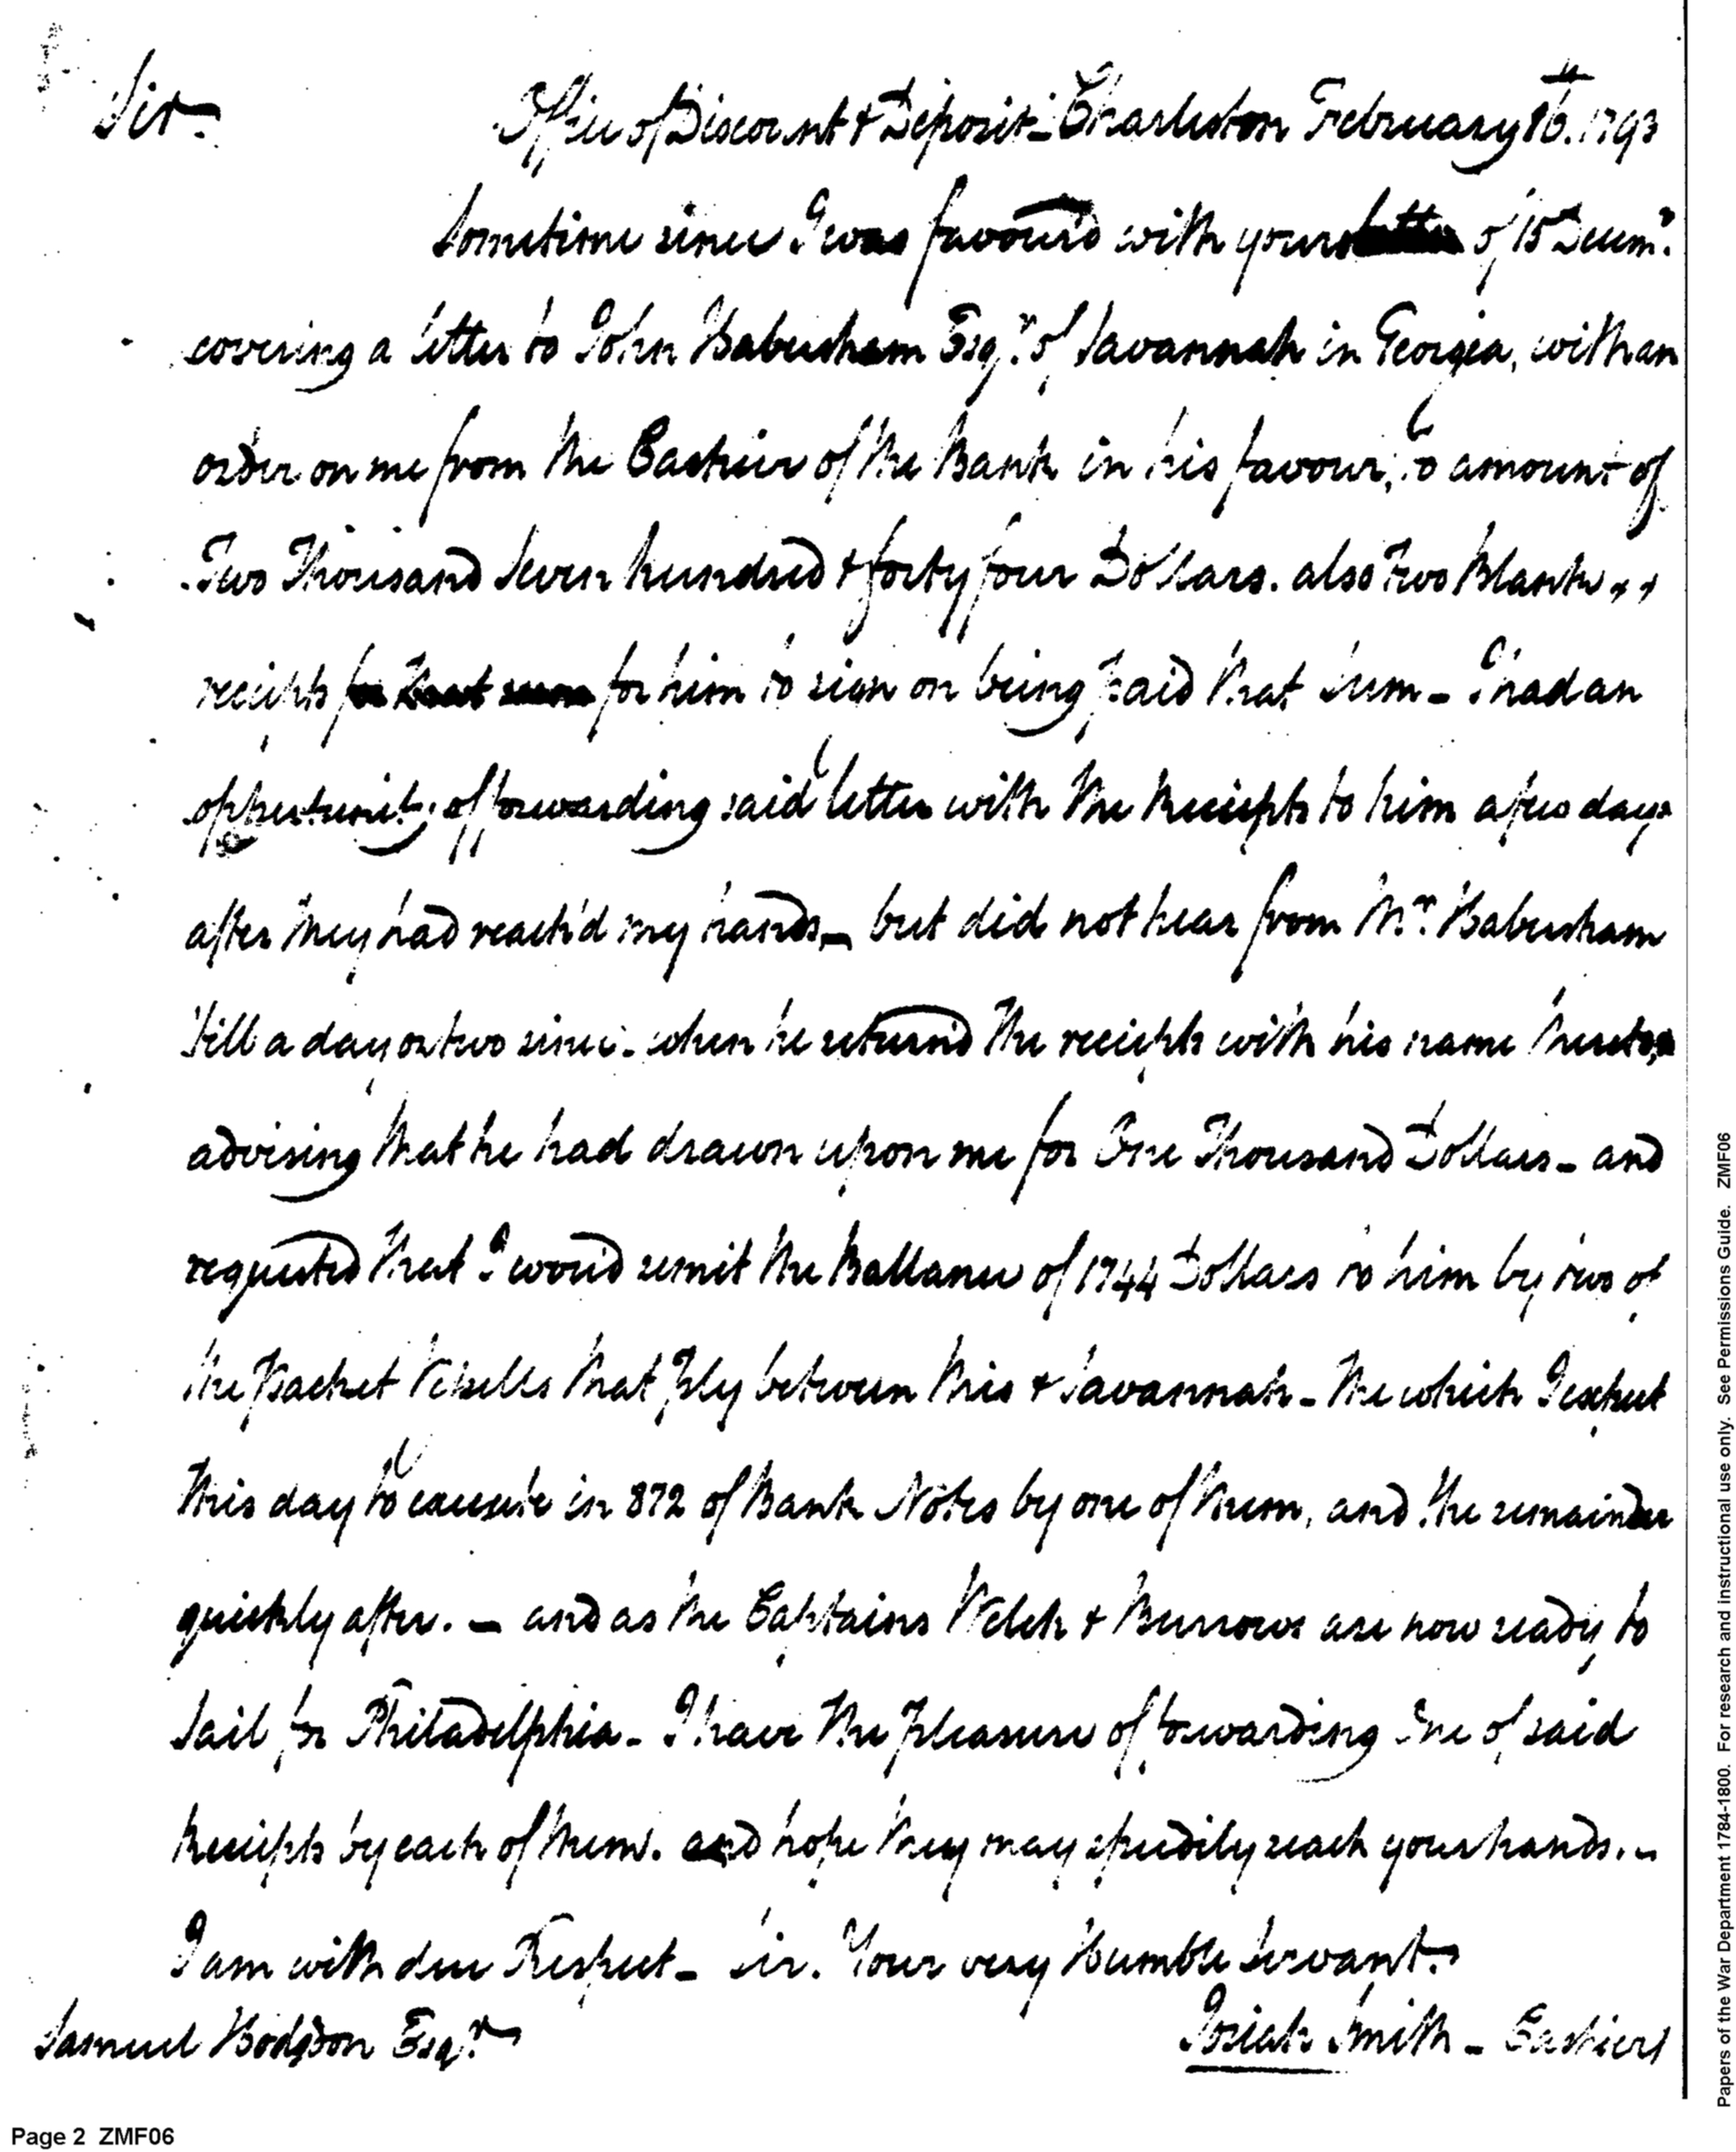 Sir. Office of Discount & Deposit - Charleston February 16th. 1793
Sometime since I was favour'd with yours of 15 Decemr.
covering a letter to John Habersham Esqr. of Savannah in Georgia, with an
order on me from the Cashier of the Bank in his favour, to amount of
Two Thousand Seven hundred & forty four Dollars. also Two blank
receipts for that sum for him to sign on being paid that Sum - I had an
opportunity of forwarding said letter with the Receipts to him a few days
after they had reach'd my hands - but did not hear from Mr. Habersham
'till a day or two since - when he return'd the receipts with his name thereto
advising that he had drawn upon me for One Thousand Dollars - and
requested that I wou'd remit the Ballance of 1744 Dollars to him by two of
the Packet Vessells that Ply between this & Savannah - the which I expect
this day to execute in 872 of Bank Notes by one of them, and the remainder
quickly after. - and as the Captains Welch & Burrows are now ready to
Sail for Philadelphia - I have the Pleasure of forwarding One of said
Receipts by each of them. and hope they may speedily reach your hands. -
I am with due Respect - Sir. Your very Humble Servant.
Samuel Hodgdon Esqr. Josiah Smith - Cashier
Page 2 ZMF06
Papers of the War Department 1784-1800. For research and instructional use only. See Permissions Guide. ZMF06